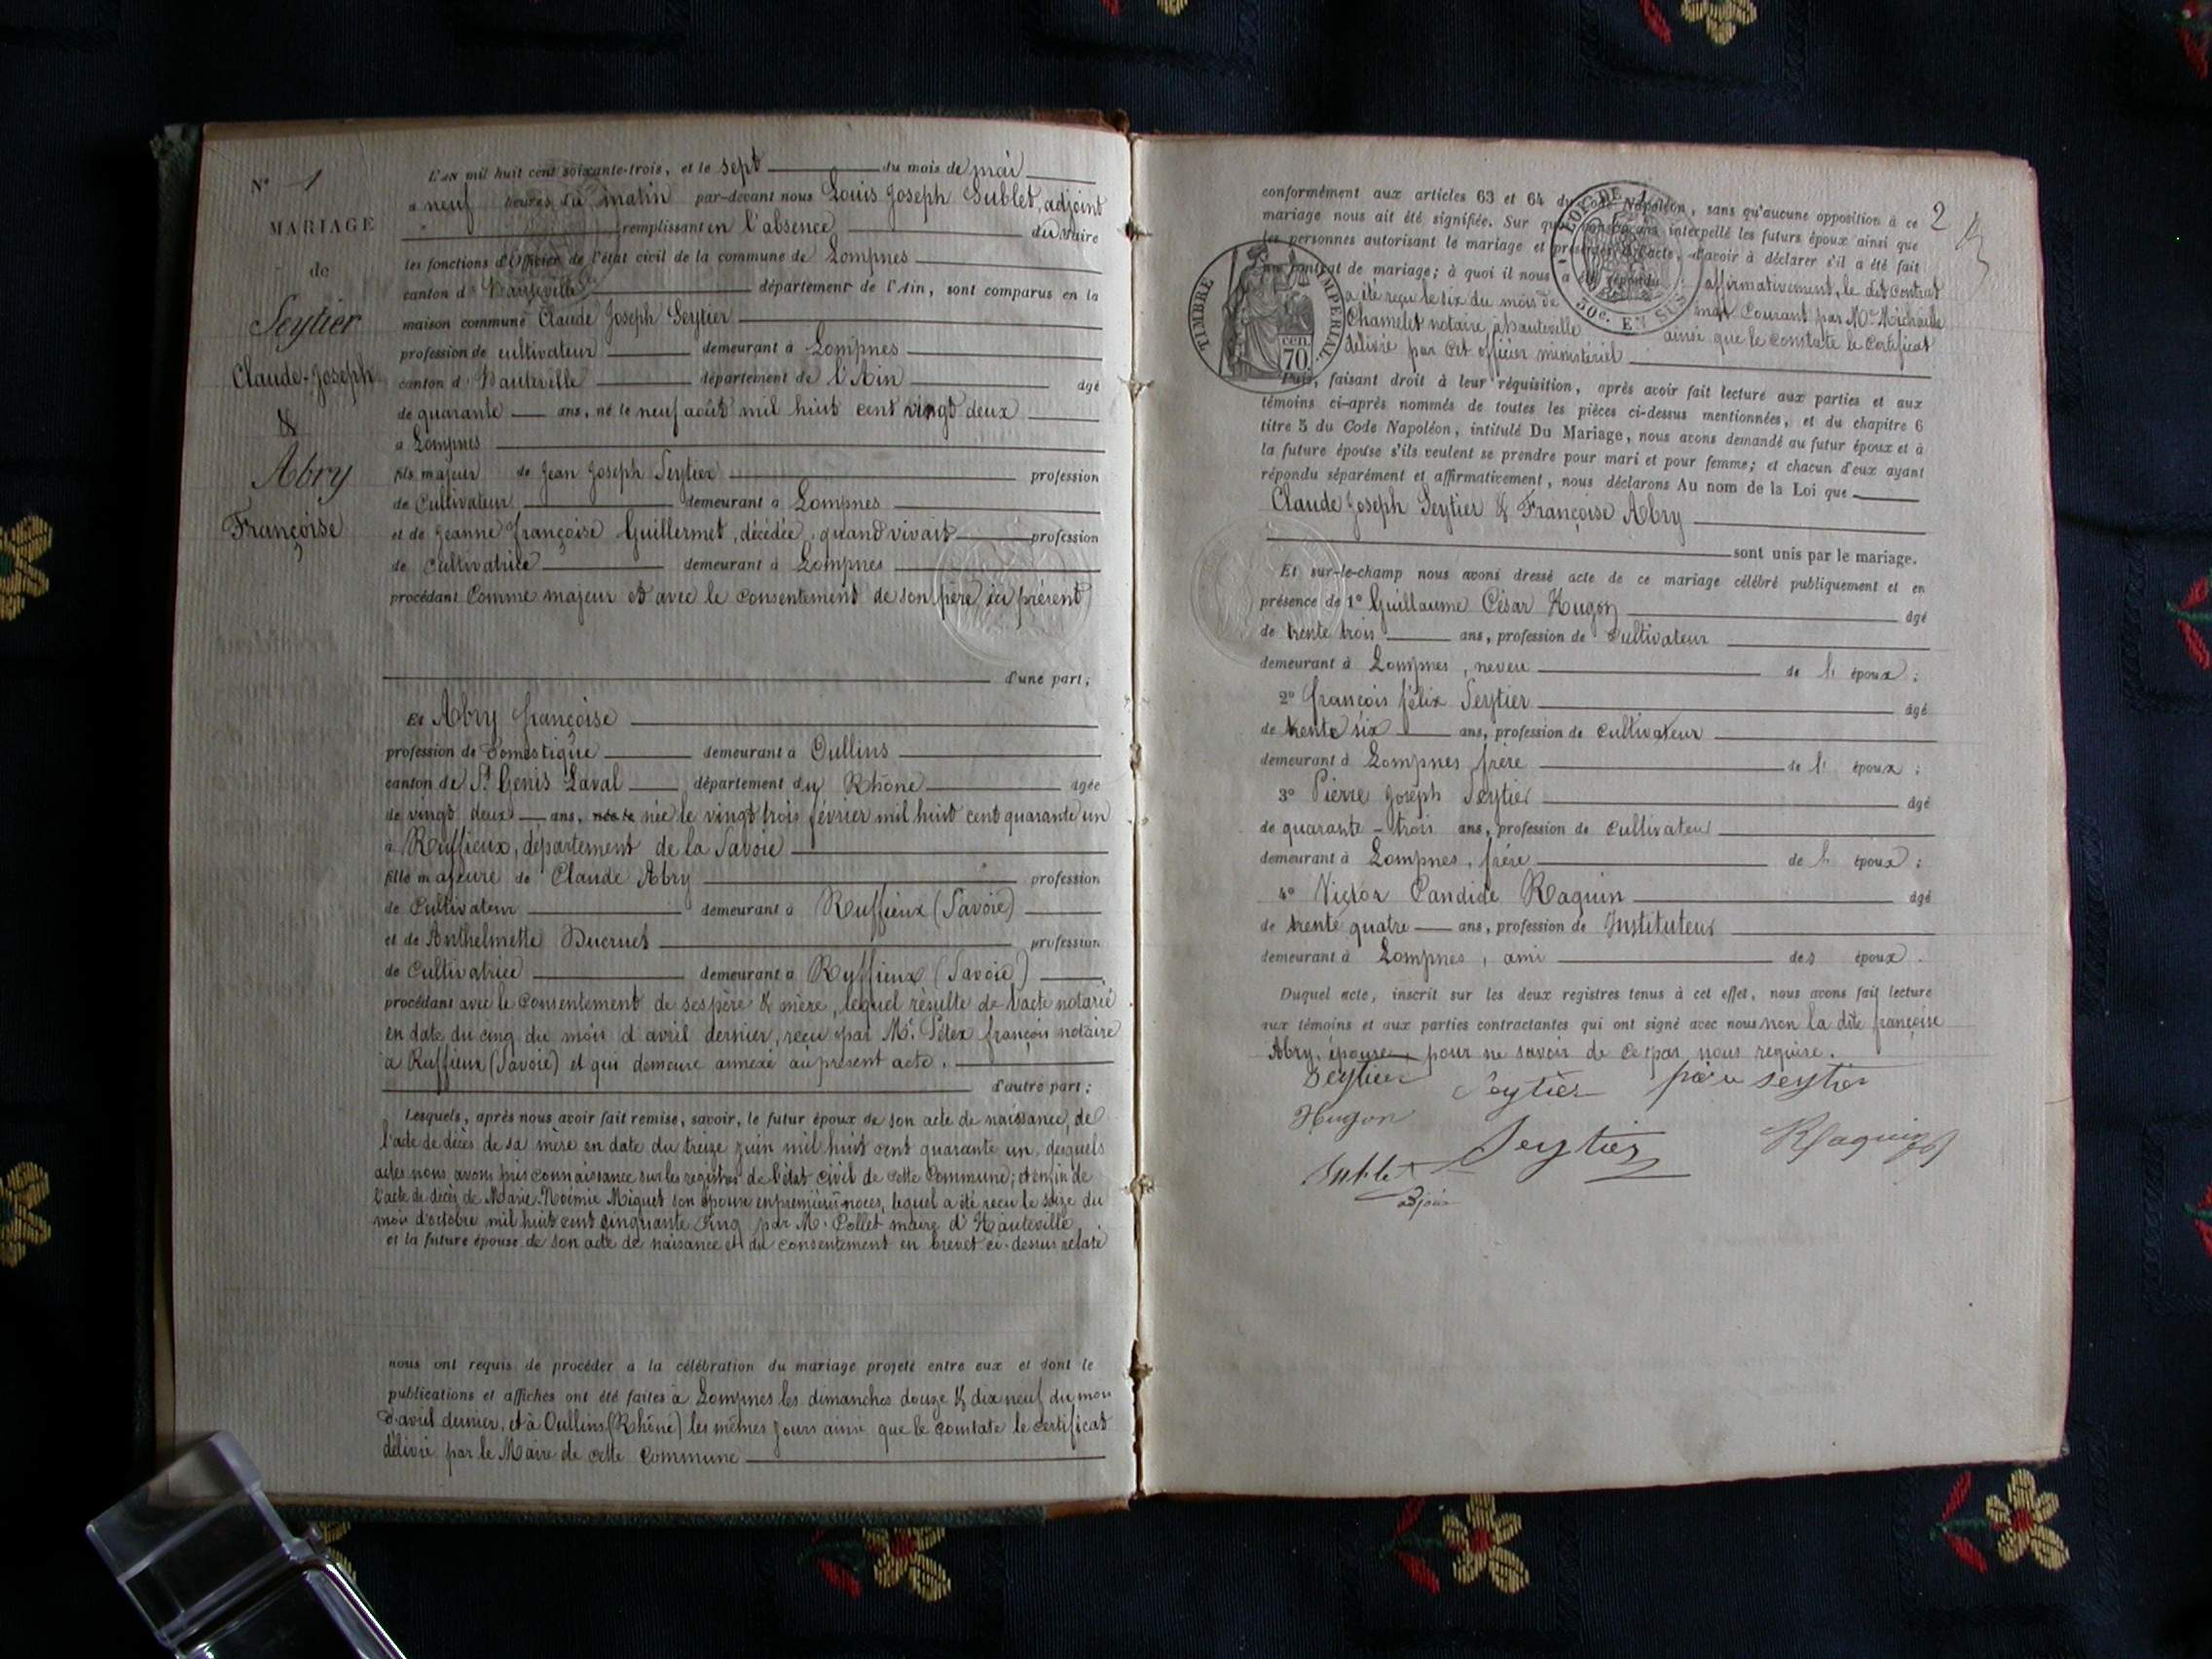 N° 1
MARIAGE
de
Seytier
Claude-Joseph
&
Abry
Françoise
L'an mil huit cent soixante-trois, et le sept du mois de mai
à neuf heures du matin par-devant nous Louis Joseph Sublet, adjoint
remplissant en l'absence du Maire
les fonctions d'Officier de l'état civil de la commune de Lompnes
canton d'Hauteville département de l'Ain, sont comparus en la
maison commune Claude Joseph Seytier
profession de cultivateur demeurant à Lompnes
canton d'Hauteville département de l'Ain âgé
de quarante ans, né le neuf août mil huit cent vingt deux
à Lompnes
fils majeur de Jean Joseph Seytier profession
de Cultivateur demeurant à Lompnes
et de Jeanne françoise Guillermet, décédée, quand vivait profession
de Cultivatrice demeurant à Lompnes
procédant Comme majeur et avec le consentement de son père ici présent
d'une part;
Et Abry françoise
profession de Domestique demeurant à Oullins
canton de St Genis Laval département du Rhône âgée
de vingt deux ans, née le née le vingt trois février mil huit cent quarante un
à Ruffieux, département de la Savoie
fille majeure de Claude Abry profession
de Cultivateur demeurant à Ruffieux (Savoie)
et de Anthelmette Ducruet profession
de Cultivatrice demeurant à Ruffieux (Savoie)
procédant avec le consentement de ses père & mère, lequel résulte de l'acte notarié
en date du cinq du mois d'avril dernier, reçu par Me Pétex françois notaire
à Ruffieux (Savoie) et qui demeure annexé au présent acte.
d'autre part;
Lesquels, après nous avoir fait remise, savoir, le futur époux de son acte de naissance, de
l'acte de décès de sa mère en date du treize juin mil huit cent quarante un, desquels
actes nous avons pris connaissance sur les registres de l'état civil de cette Commune; et enfin de
l'acte de décès de Marie-Noémie Miguet son épouse en premières noces, lequel a été reçu le seize du
mois d'octobre mil huit cent cinquante cinq par M. Collet maire d'Hauteville
et la future épouse de son acte de naissance et du consentement en brevet ci-dessus relaté
nous ont requis de procéder à la célébration du mariage projeté entre eux et dont le
publications et affiches ont été faites à Lompnes les dimanches douze & dix neuf du mois
d'avril dernier, et à Oullins (Rhône) les mêmes jours ainsi que le constate le certificat
délivré par le Maire de cette Commune
2
conformément aux articles 63 et 64 du Code Napoléon, sans qu'aucune opposition à ce
mariage nous ait été signifiée. Sur quoi nous avons interpellé les futurs époux ainsi que
les personnes autorisant le mariage et présentes à l'acte, d'avoir à déclarer s'il a été fait
un contrat de mariage; à quoi il nous a été répondu affirmativement, le dit contrat
a été reçu le six du mois de mai Courant par Me Michaille
Chamelet notaire à hauteville ainsi que le constate le Certificat
délivré par cet officier ministériel
TIMBRE IMPÉRIAL
cen.
70.
50c. EN SUS
Puis, faisant droit à leur réquisition, après avoir fait lecture aux parties et aux
témoins ci-après nommés de toutes les pièces ci-dessus mentionnées, et du chapitre 6
titre 5 du Code Napoléon, intitulé Du Mariage, nous avons demandé au futur époux et à
la future épouse s'ils veulent se prendre pour mari et pour femme; et chacun d'eux ayant
répondu séparément et affirmativement, nous déclarons Au nom de la Loi que
Claude Joseph Seytier & Françoise Abry
sont unis par le mariage.
Et sur-le-champ nous avons dressé acte de ce mariage célébré publiquement et en
présence de 1° Guillaume César Hugon âgé
de trente trois ans, profession de Cultivateur
demeurant à Lompnes, neveu de l' époux;
2° françois félix Seytier âgé
de trente six ans, profession de Cultivateur
demeurant à Lompnes frère de l' époux;
3° Pierre Joseph Seytier âgé
de quarante-trois ans, profession de Cultivateur
demeurant à Lompnes, frère de l' époux;
4° Victor Candide Raquin âgé
de trente quatre ans, profession de Instituteur
demeurant à Lompnes, ami des époux.
Duquel acte, inscrit sur les deux registres tenus à cet effet, nous avons fait lecture
aux témoins et aux parties contractantes qui ont signé avec nous non la dite françoise
Abry, épouse, pour ne savoir de ce par nous requise.
Seytier Seytier père seytier
Hugon Seytier Raquin
Sublet
adjoint